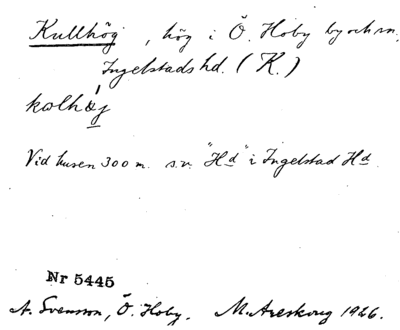 Kullhög, hög i Ö. Hoby by och sn,
Ingelstads hd. (K.)
kolhöj
Vid husen 300 m. s.v. "Hd" i Ingelstad Hd
Nr 5445
A. Svensson, Ö. Hoby. M. Areskoug 1926.